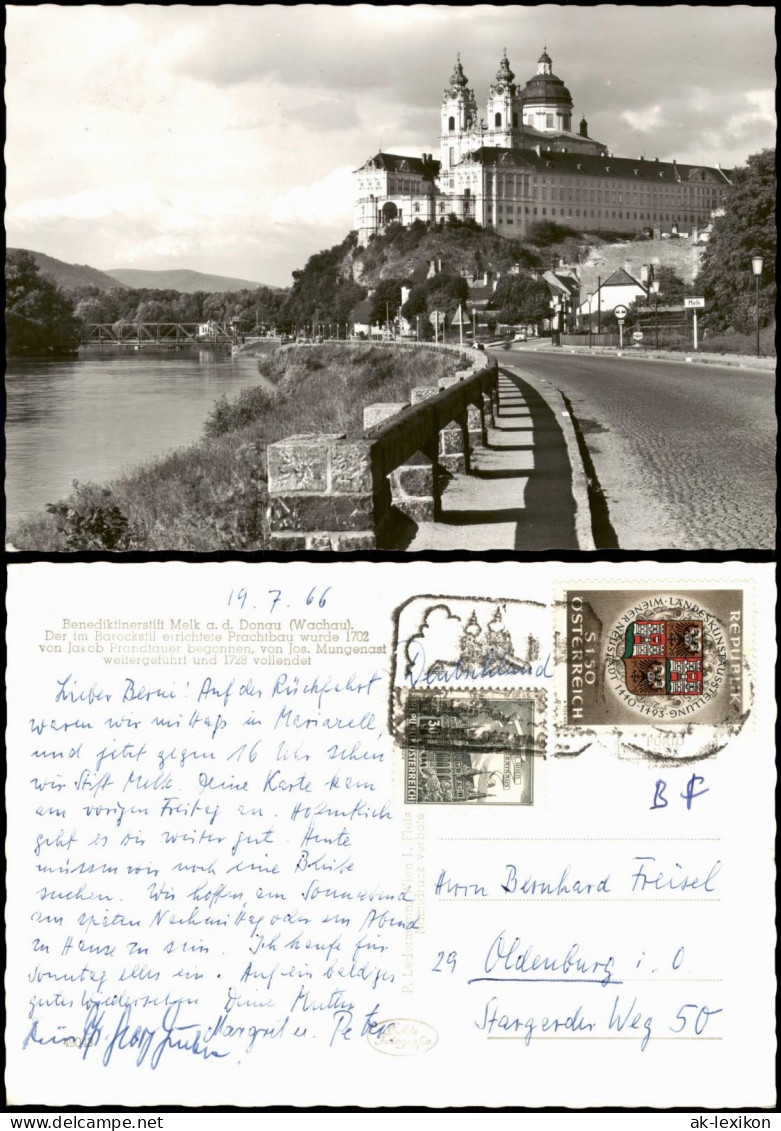 Melk
19.7.66
Benediktinerstift Melk a. d. Donau (Wachau).
Der im Barockstil errichtete Prachtbau wurde 1702
von Jakob Prandtauer begonnen, von Jos. Mungenast
weitergeführt und 1728 vollendet
Lieber Berni! Auf der Rückfahrt
waren wir mittags in Mariazell,
und jetzt gegen 16 Uhr sehen
wir Stift Melk. Deine Karte kam
am vorigen Freitag an. Hoffentlich
geht es dir weiter gut. Heute
müssen wir noch eine Bleibe
suchen. Wir hoffen, am Sonnabend
am späten Nachmittag oder am Abend
zu Hause zu sein. Ich kaufe für
Sonntag alles ein. Auf ein baldiges
gutes Wiedersehen Deine Mutter
Margret u. Peter
Dein
Deutschland
REPUBLIK ÖSTERREICH
S 1.50
WIENER NEUSTADT · LANDESKUNSTAUSSTELLUNG
1440-1493
REPUBLIK ÖSTERREICH
Herrn Bernhard Freisel
29 Oldenburg i. O
Stargarder Weg 50
P. Ledermann, Wien I.
Echte
Fotografie
© ak-lexikon
www.ak-lexikon.com